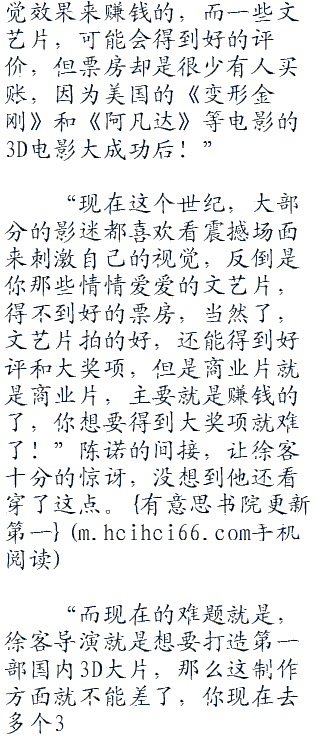 觉效果来赚钱的，而一些文
艺片，可能会得到好的评
价，但票房却是很少有人买
账，因为美国的《变形金
刚》和《阿凡达》等电影的
3D电影大成功后！”
“现在这个世纪，大部
分的影迷都喜欢看震撼场面
来刺激自己的视觉，反倒是
你那些情情爱爱的文艺片，
得不到好的票房，当然了，
文艺片拍的好，还能得到好
评和大奖项，但是商业片就
是商业片，主要就是赚钱的
了，你想要得到大奖项就难
了！”陈诺的间接，让徐客
十分的惊讶，没想到他还看
穿了这点。{有意思书院更新
第一}(m.hcihci66.com手机
阅读)
“而现在的难题就是，
徐客导演就是想要打造第一
部国内3D大片，那么这制作
方面就不能差了，你现在去
多个3